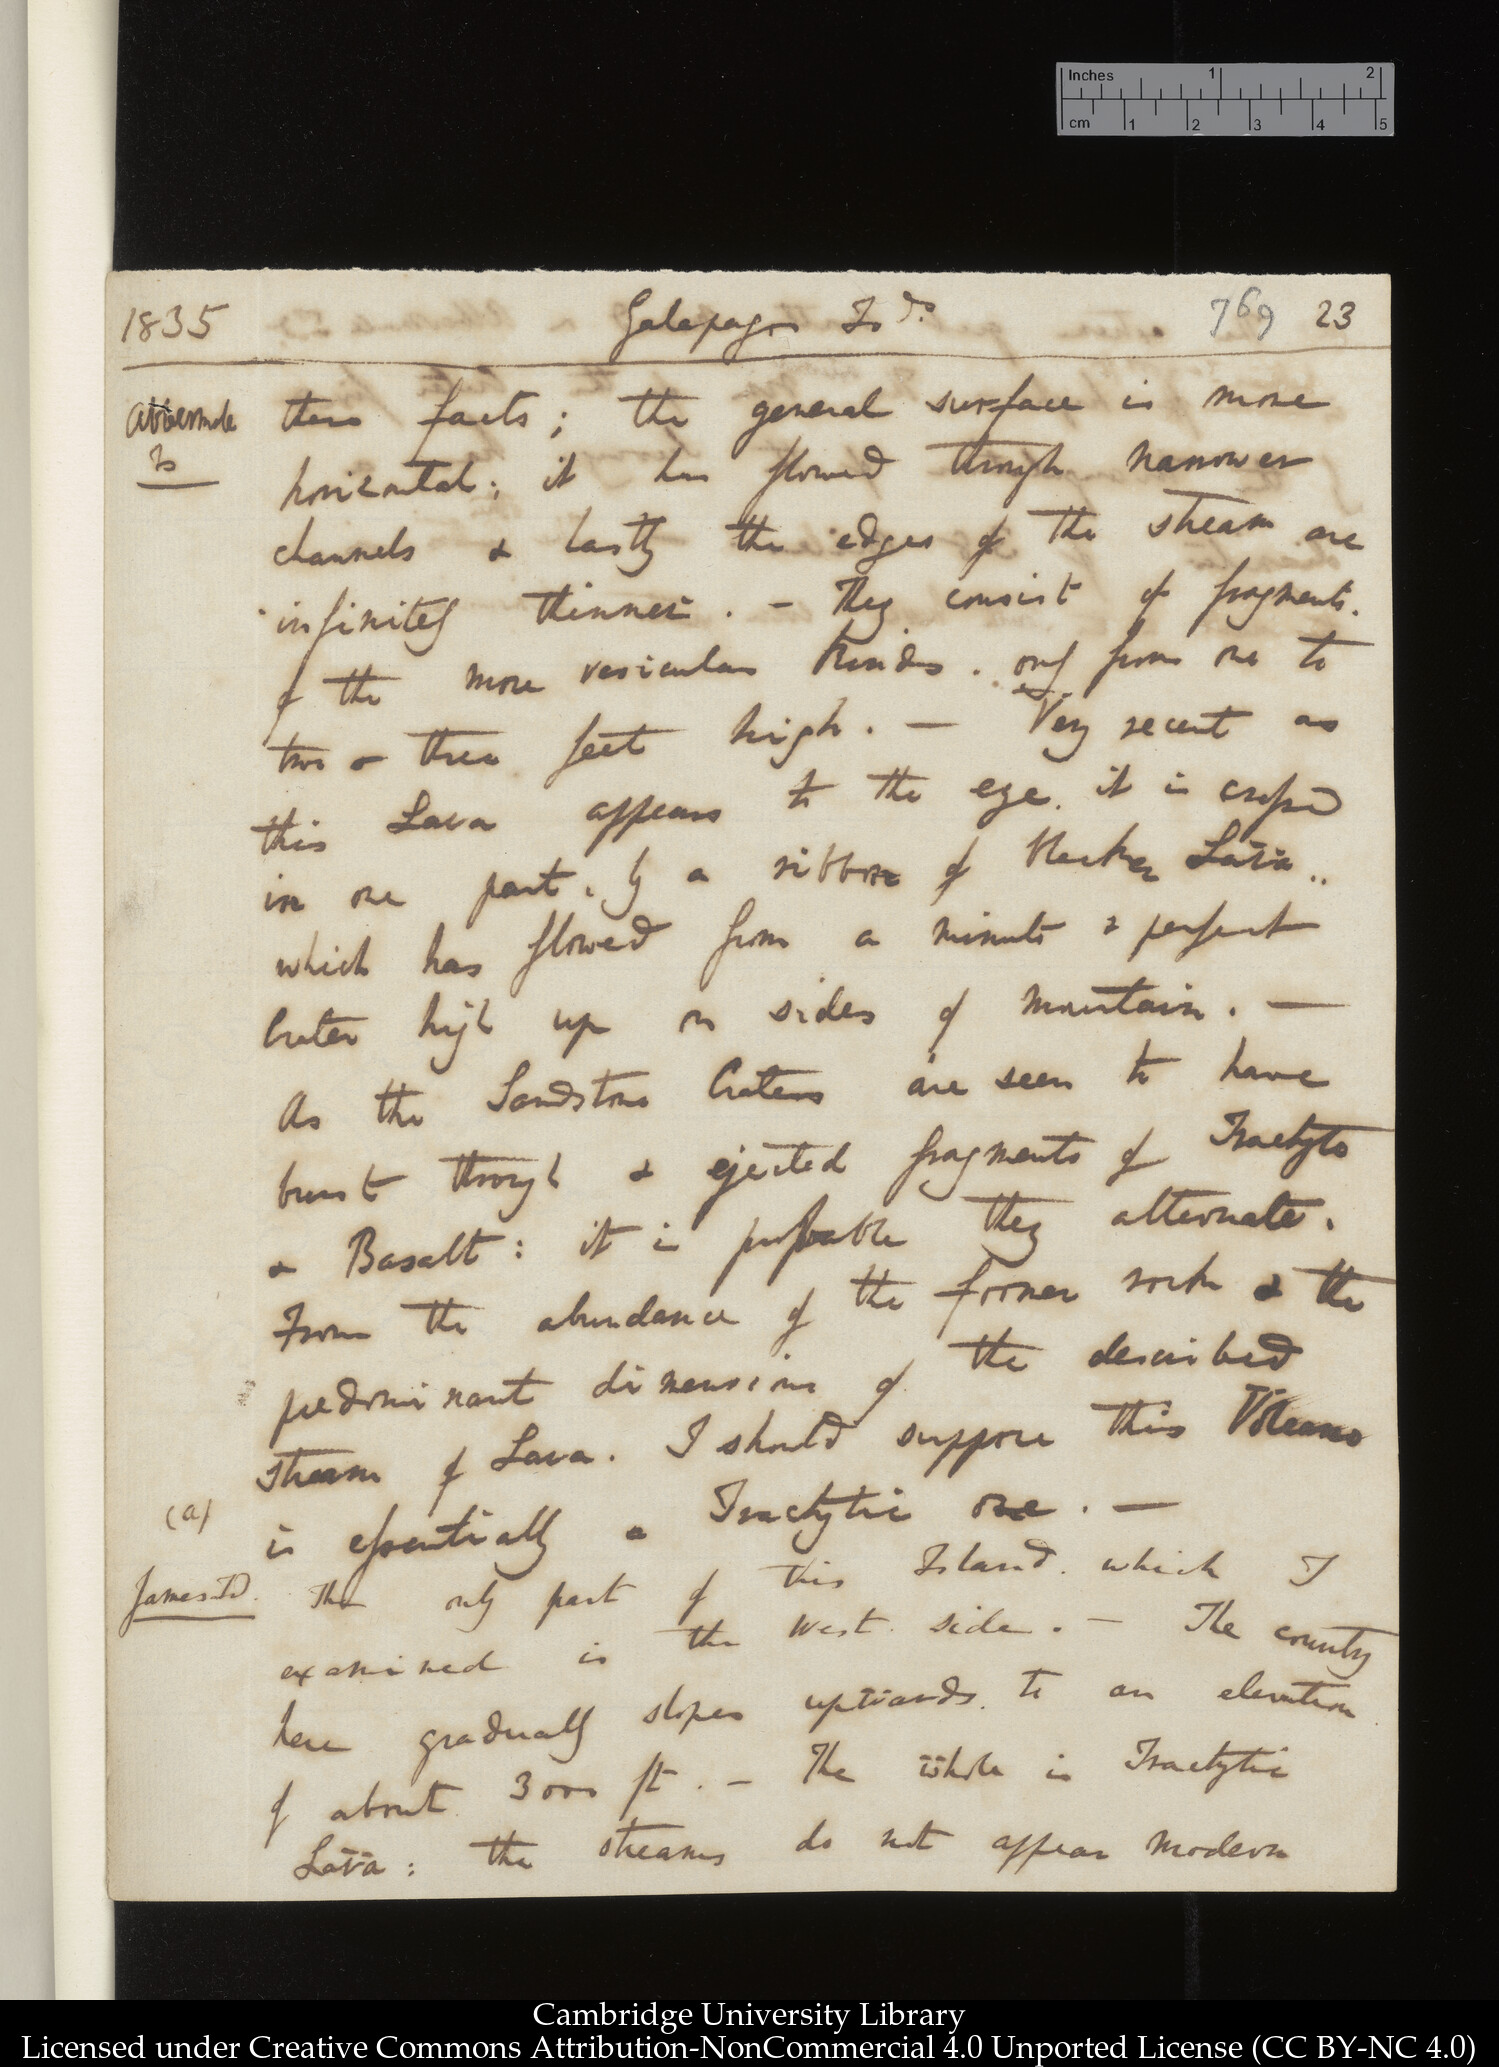 Inches 1 2
cm 1 2 3 4 5
1835 Galapagos Is ds. 769 23
Albermale these facts; the general surface is more
Is horizontal; it has flowed through narrower
channels & lastly the edges of the stream are
infinitely thinner. — They consist of fragments.
of the more vesicular kinds. only from one to
two or three feet high. — Very recent as
this Lava appears to the eye. it is crossed
in one part, by a ribbon of blacker Lava..
which has flowed from a minute & perfect
Crater high up on sides of mountain. —
As the Sandstone Craters are seen to have
burst through & ejected fragments of Trachyte
& Basalt: it is probable they alternate.
From the abundance of the former rock & the
predominant dimensions of the described
stream of Lava. I should suppose this Volcano
(a) is essentially a Trachytic one. —
James Id. The only part of this Island. which I
examined is the West side. — The country
here gradually slopes upwards. to an elevation
of about 3000 ft. — The whole is Trachytic
Lava: the streams do not appear modern
Cambridge University Library
Licensed under Creative Commons Attribution-NonCommercial 4.0 Unported License (CC BY-NC 4.0)